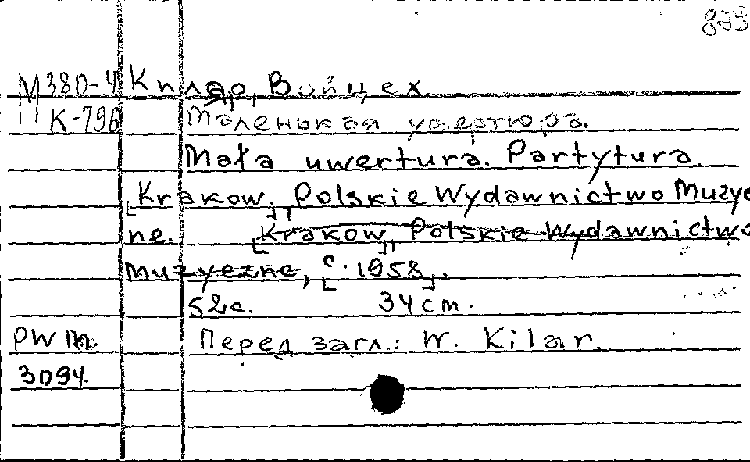 М380-4 Килар, Войцех.
К-796 Маленькая увертюра.
Mała uwertura. Partytura.
[Krakow.] Polskie Wydawnictwo Muzycz
ne. [Krakow] Polskie Wydawnictwo
Muzyczne, c. [1958].
52с. 34 cm.
PWM Перед загл.: W. Kilar.
3094.